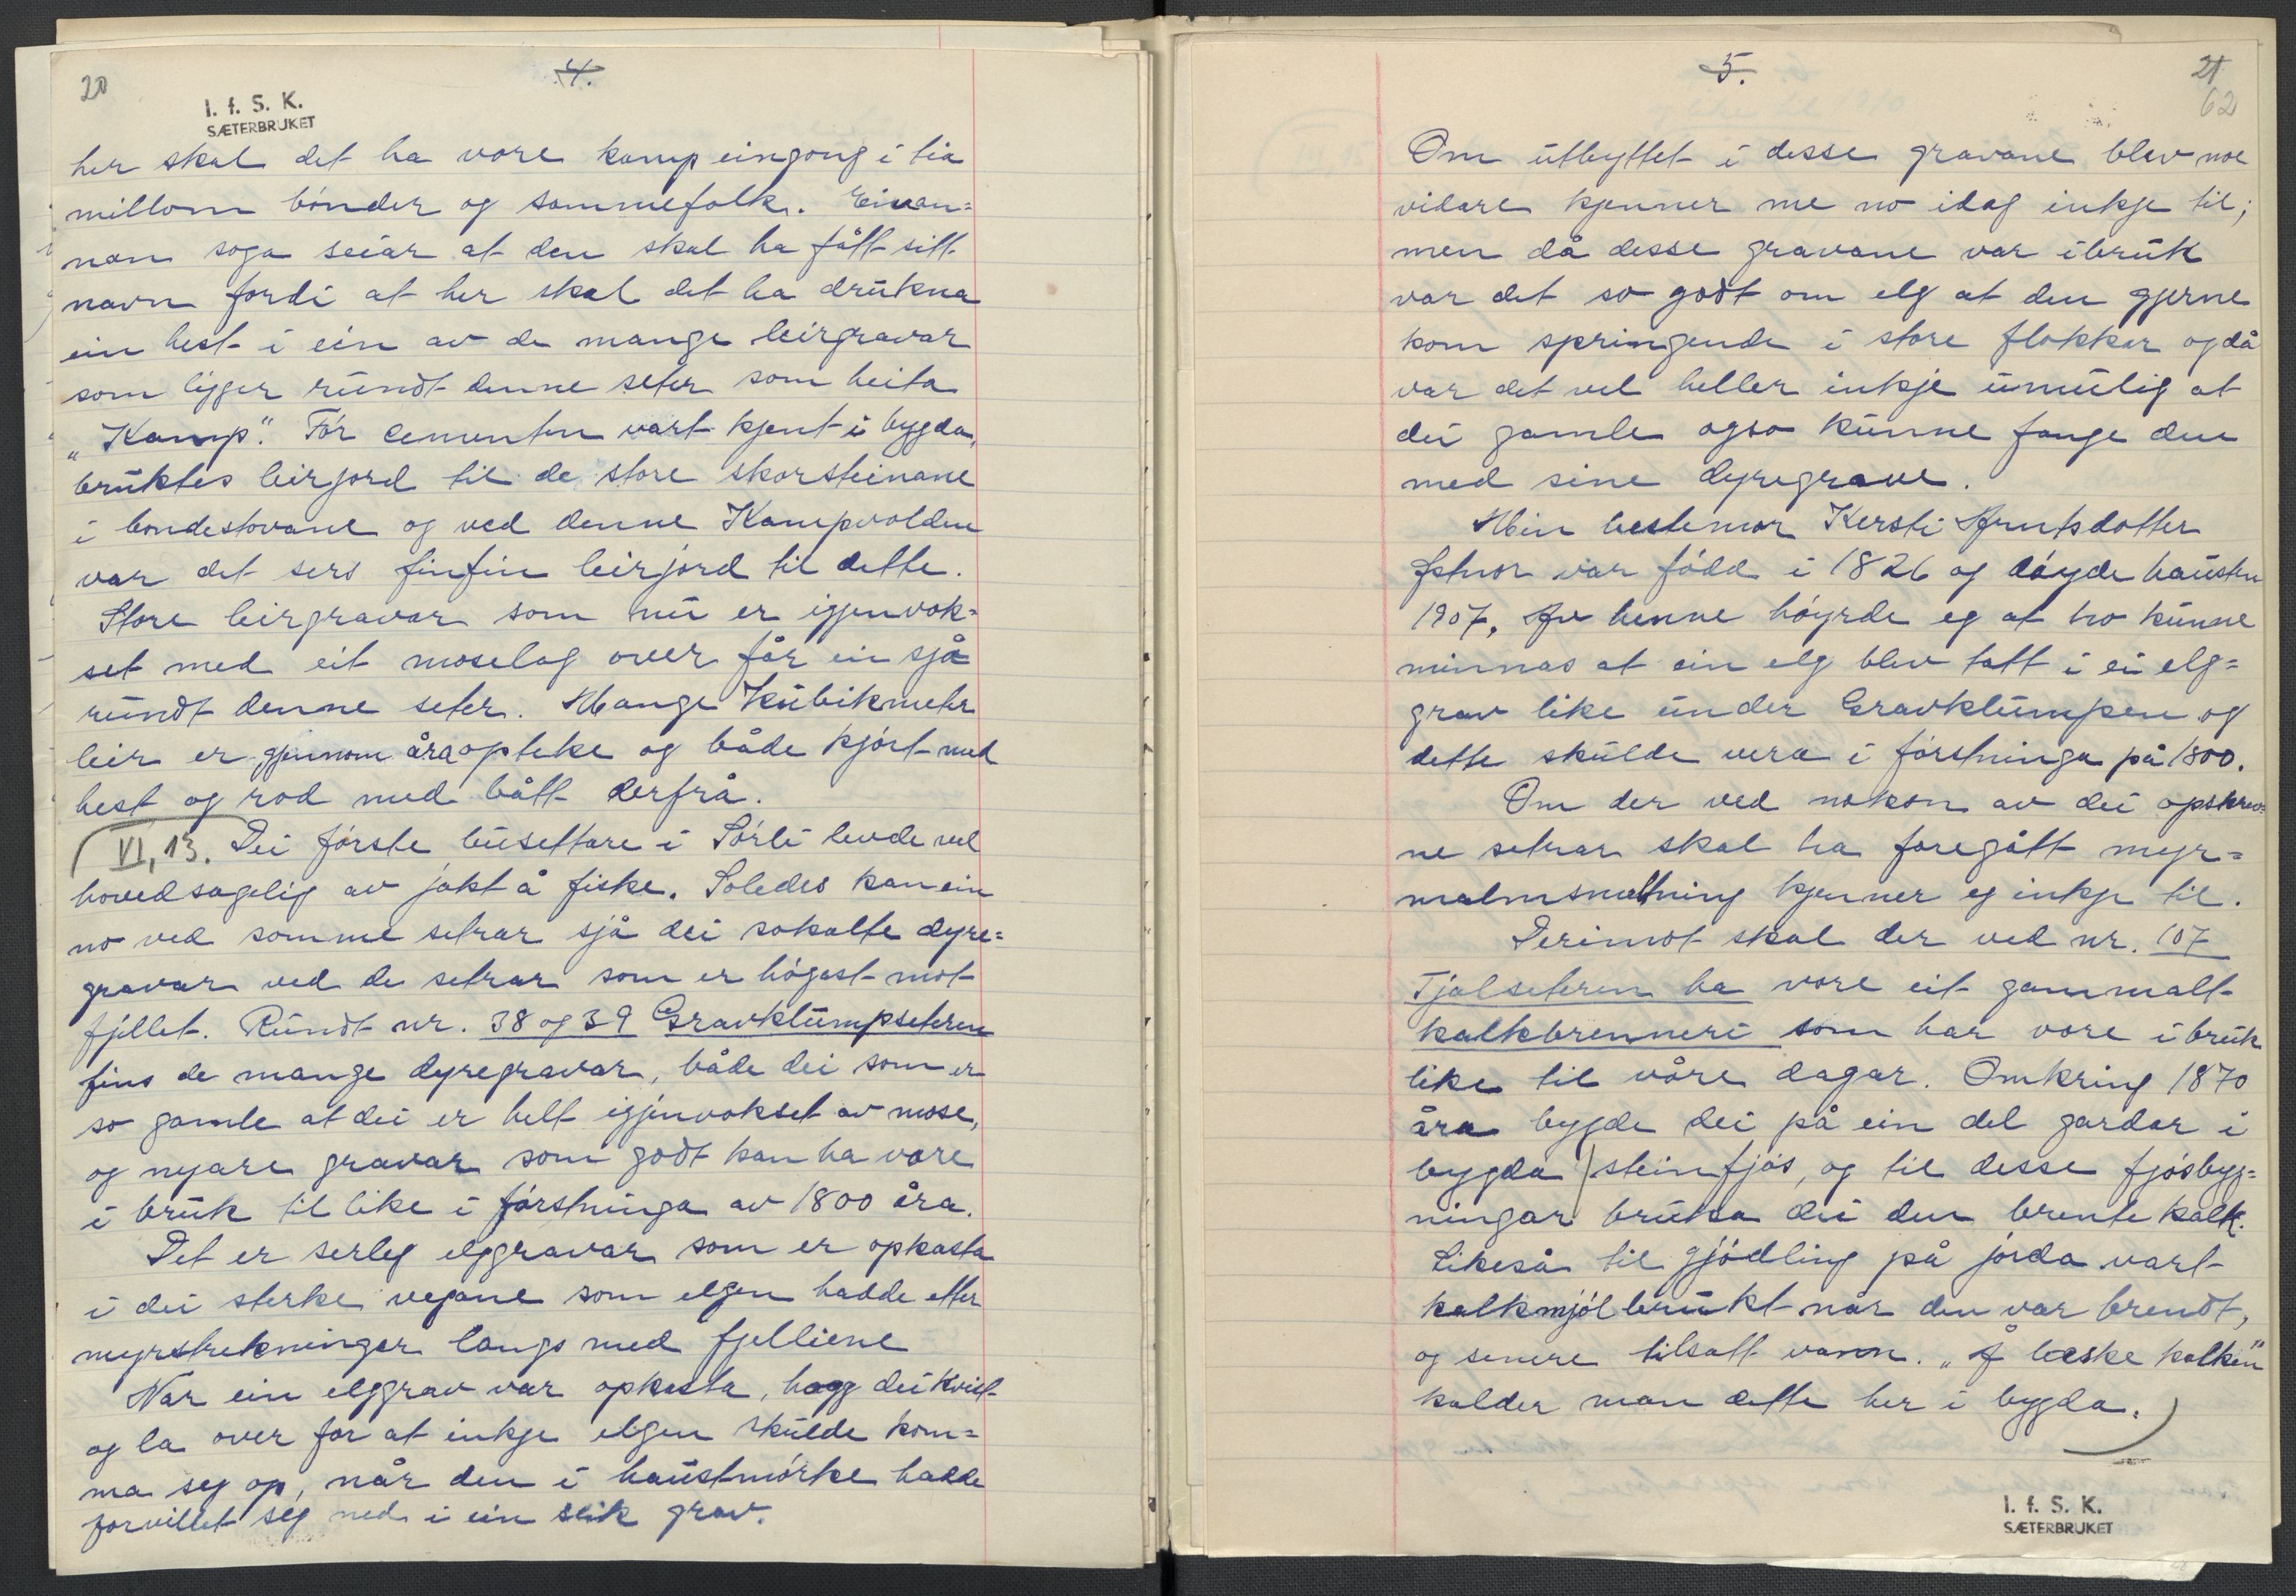 20
4.
I. f. S. K.
SÆTERBRUKET
her skal det ha vore kamp eingong i tia
millom bønder og sammefolk. Einan=
nan soga seiar at den skal ha fått sitt
navn fordi at her skal det ha drukna
ein hest i ein av de mange leirgravar
som ligger rundt denne seter som heita
„Kamp". Før cementen vart kjent i bygda,
bruktes leirjord til de store skorsteinane
i bondestovane og ved denne Kampvolden
var det sers finfin leirjord til dette.
Store leirgravar som nu er igjenvok=
set med eit moselag over får ein sjå
rundt denne seter. Mange kubikmeter
leir er gjennom åra opteke og både kjørt med
hest og rod med bått derfrå.
VI, 13. Dei første busettare i Sørli levde vel
hovedsagelig av jakt å fiske. Soledes kan ein
no ved somme setrar sjå dei sokalte dyre=
gravar ved de setrar som er høgast mot
fjellet. Rundt nr. 38 og 39 Gravklumpseteren
fins de mange dyregravar, både dei som er
so gamle at dei er helt igjenvokset av mose,
og nyare gravar som godt kan ha vore
i bruk til like i førstninga av 1800 åra.
Det er serleg elggravar som er opkasta
i dei sterke vegane som elgen hadde etter
myrstrekninger langs med fjelliene
Når ein elggrav var opkasta, hogg dei kvist
og la over for at inkje elgen skulde kom=
ma seg op, når den i haustmørke hadde
forvillet seg ned i ein slik grav.
5.
21
62
Om utbyttet i desse gravane blev noe
vidare kjenner me no idag inkje til;
men då desse gravane var i bruk
var det so godt om elg at den gjerne
kom springende i store flokkar og då
var det vel heller inkje umulig at
dei gamle ogso kunne fange den
med sine dyregrave.
Min bestemor Kersti Arntsdotter
Estnor var född i 1826 og døyde hausten
1907. Av henne høyrde eg at ho kunne
minnas at ein elg blev tatt i ei elg=
grav like under Gravklumpen og
dette skulde vera i førstninga på 1800.
Om der ved nokon av dei opskrev=
ne setrar skal ha foregått myr=
malmsmeltning kjenner eg inkje til.
Derimot skal der ved nr. 107
Tjalseteren ha vore eit gammalt
kalkbrenneri som har vore i bruk
like til våre dagar. Omkring 1870
åra bygde dei på ein del gardar i
bygda steinfjøs, og til desse fjøsbyg=
ningar bruka dei den brente kalk.
Likeså til gjødling på jorda vart
kalkmjøl brukt når den var brendt,
og senere tilsatt vann. „Å læske kalken"
kalder man dette her i bygda.
I. f. S. K.
SÆTERBRUKET